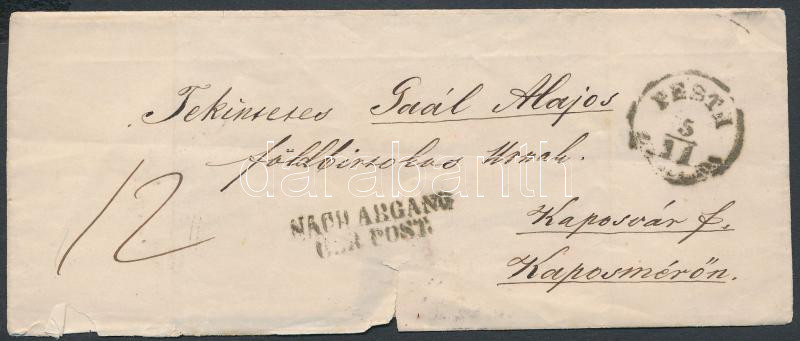 Tekintetes Gaál Alajos
PESTH
5
11
földbirtokos Urnak.
12
NACH ABGANG
DER POST.
Kaposvár f.
Kaposmérőn.
darabanth